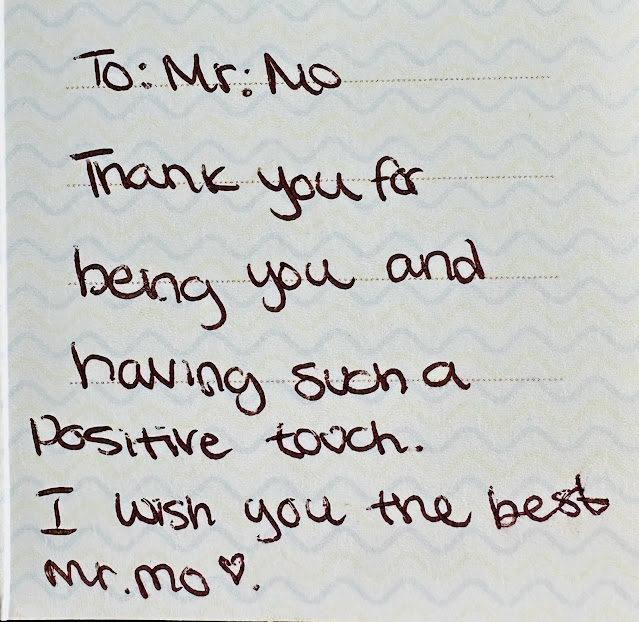 To: Mr: Mo
Thank you for
being you and
having such a
Positive touch.
I wish you the best
Mr. Mo ♡.